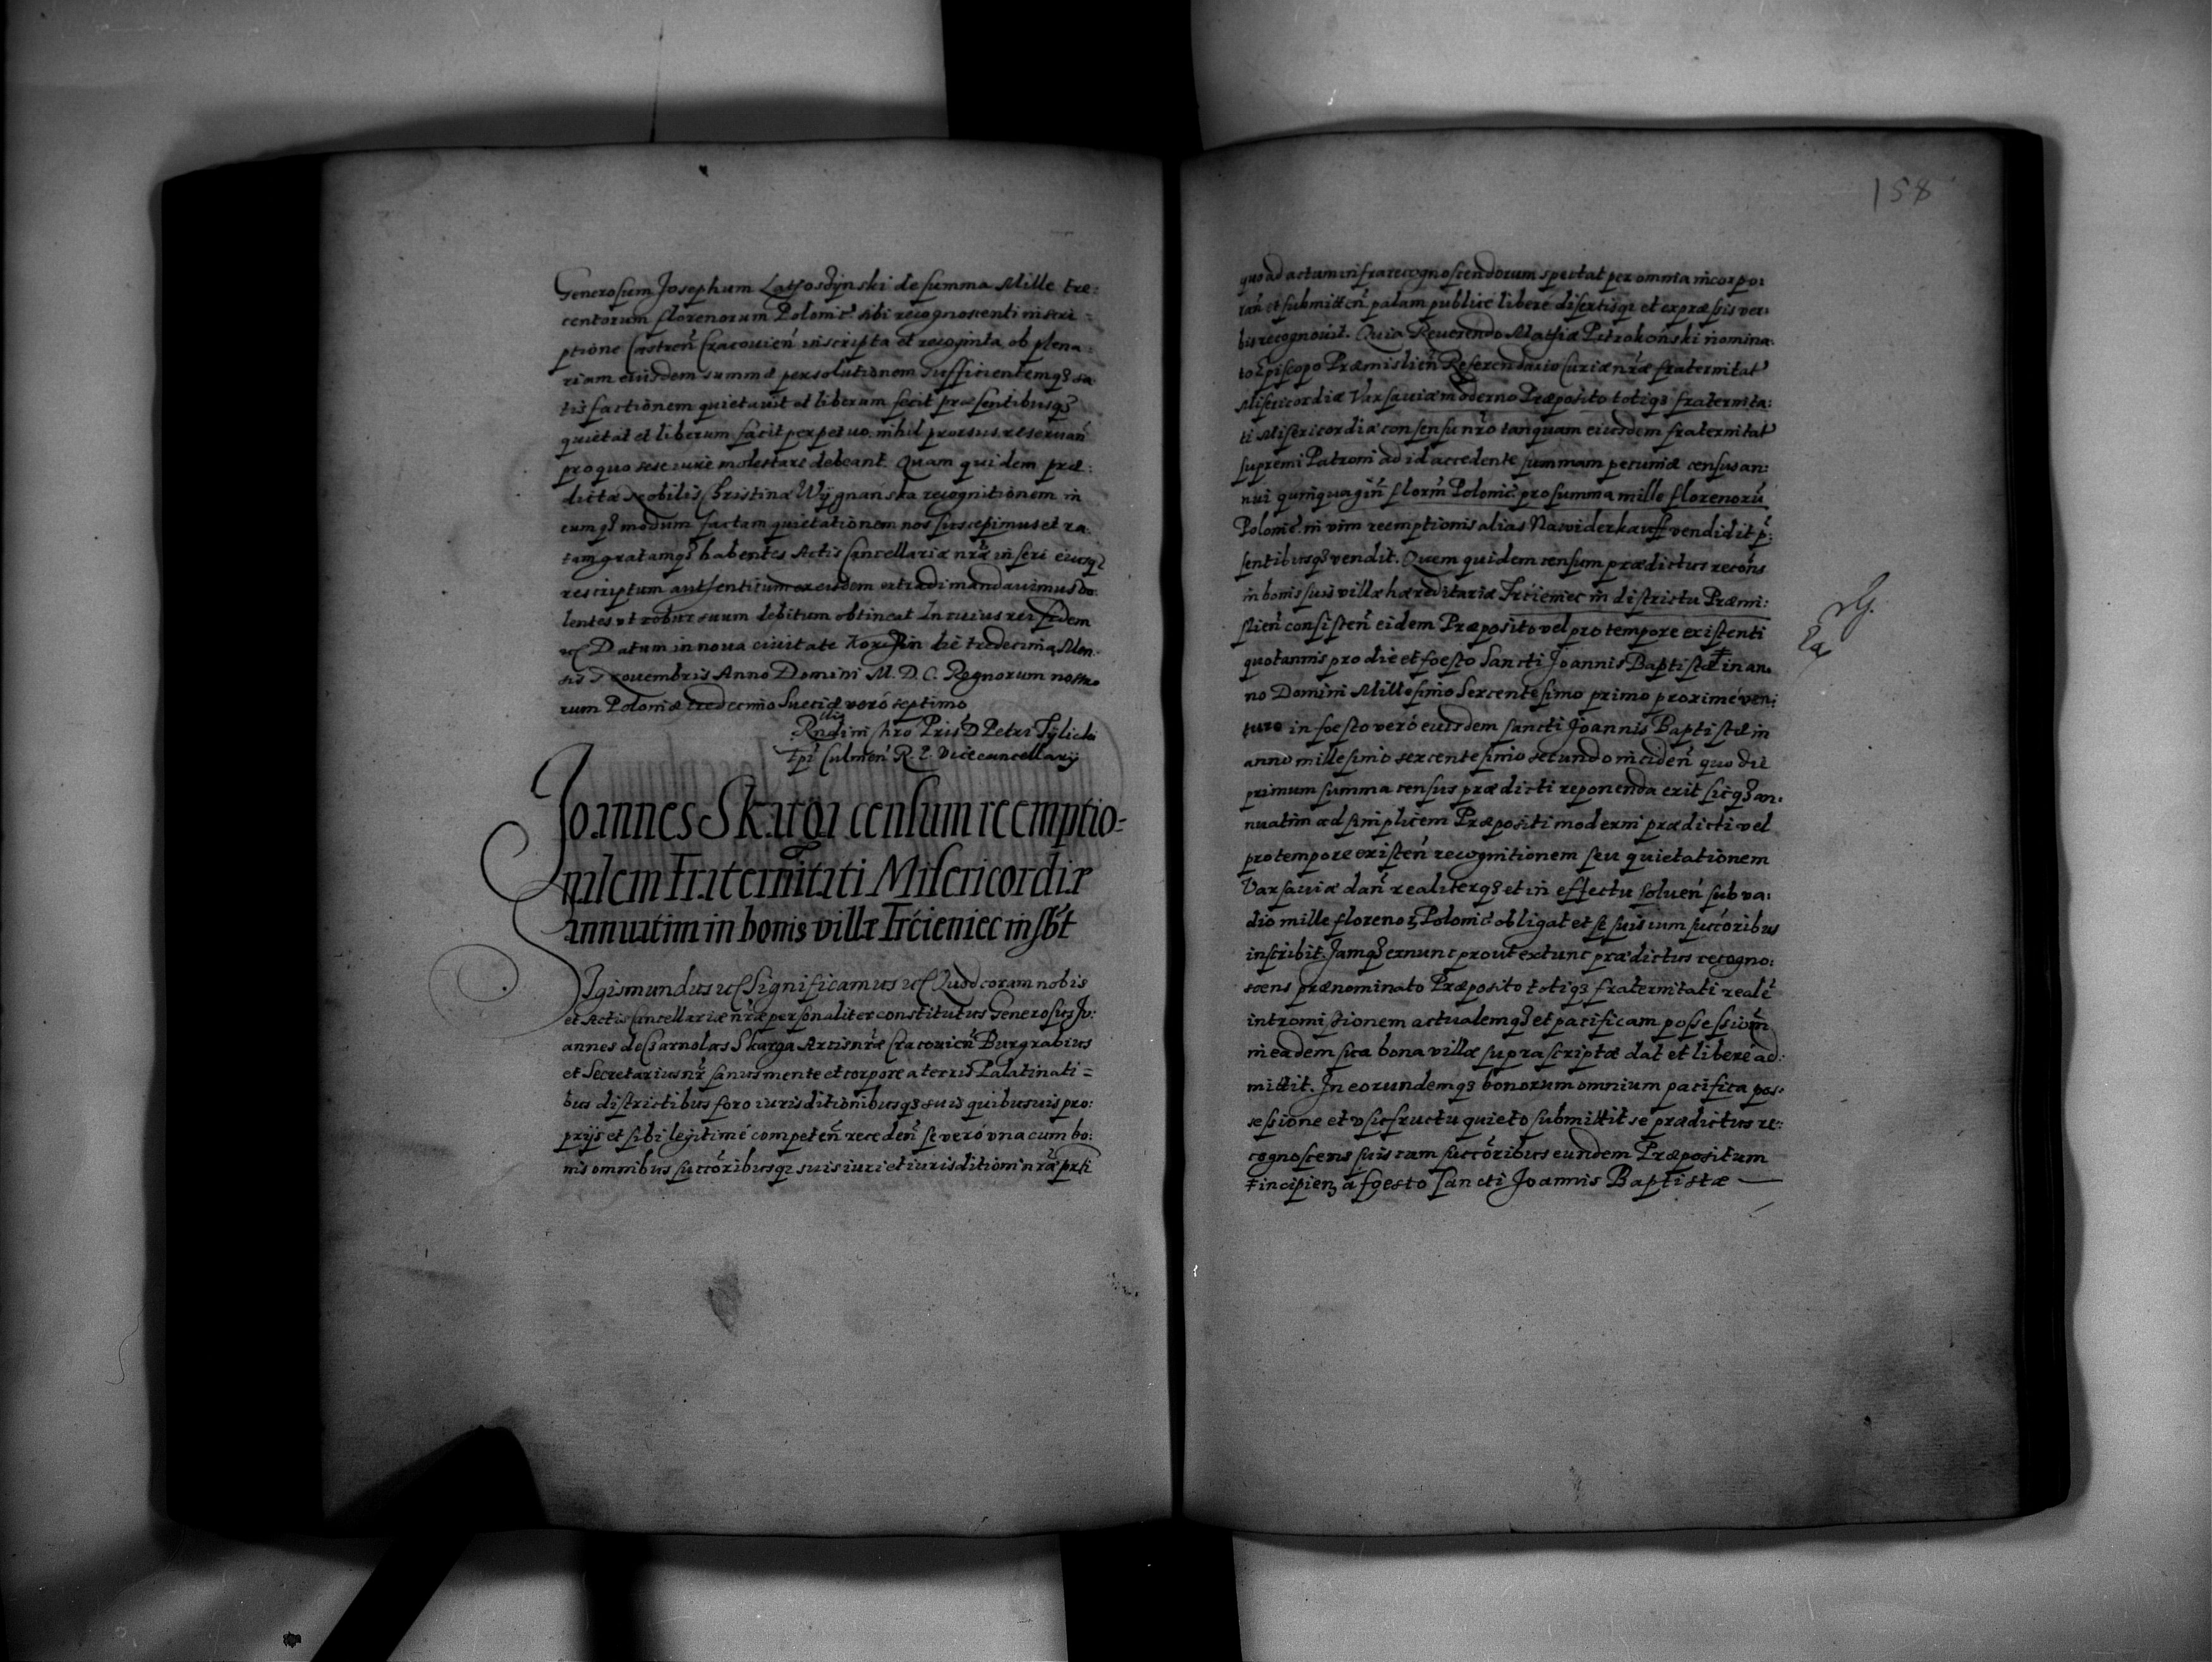 Generosum Josephum Latyosdÿnski de summa Mille tre:
centorum florenorum Polonic̃ sibi recognoscenti inscri =
ptione Castren̄ Cracouien̄ inscripta et recognita ob plena:
riam eiusdem summæ persolutionem sufficientemqȝ sa
tisfactionem quietauit et liberum fecit præsentibusqȝ
quietat et liberum facit perpetuo nihil prorsus reseruan̄
pro quo sese iure molestare debeant. Quam quidem præ:
dictæ Nobilis Christinæ Wÿgnańska recognitionem in
eumqȝ modum factam quietationem nos suscepimus et ra
tam gratamqȝ habentes Actis Cancellariæ nr̄æ inseri eiusqȝ
rescriptum authenticum ex eisdem extradi mandauimus vo
lentes vt robur suum debitum obtineat In cuius rei fidem
etc Datum in noua ciuitate Korczin die tredecima Men
sis Nouembris Anno Domini M. D. C. Regnorum nostro
rum Poloniæ tredecimo Sueciæ veró septimo
Rndi in Chro Pris D Petri Tÿlicki
Epi Culmen̄ R. P. Vicecancellarij
Joannes Skarga censum reemptio=
nalem Fraternitati Misericordiæ
annuatim in bonis villæ Trćieniec inscbt
Sigismundus etc Significamus etc Quod coram nobis
et Actis Cancellariæ nr̄æ personaliter constitutus Generosus Jo:
annes de Czarnolas Skarga Arcis nr̄æ Cracouien̄ Burgrabius
et Secretarius nr̄ sanus mente et corpore a terris Palatinati =
bus districtibus foro iurisditionibusqȝ suis quibusuis pro:
prijs et sibi legitime competen̄ receden̄ se veró vna cum bo:
nis omnibus succōribusqȝ suis iuri et iurisditioni nr̄æ prñti
158
quo ad actum infrarecognoscendorum spectat per omnia incorpo:
ran̄ et submitten̄ palam publicé liberé disertisqȝ et expræssis ver:
bis recognouit. Quia Reuerendo Mathiæ Pstrokoński nomina
to Episcopo Præmislien̄ Referendario Curiæ nr̄æ fraternitat̃
Misericordiæ Varsauiæ moderno Præposito totiqȝ fraternita:
ti Misericordiæ consensu nr̄o tanquam eiusdem fraternitat̃
supremi Patroni ad id accedente summam pecuniæ census an:
nui quinquagin̄ florin̄ Polonic̃ pro summa mille florenorū
Polonic̃ in vim reemptionis alias Nawiderkauff vendidit p̃:
sentibusqȝ vendit. Quem quidem censum prædictus recōns
in bonis suis villæ hæreditariæ Trćieniec in districtu Præmi:
slien̄ consisten̄ eidem Præposito vel pro tempore existenti
quotannis pro die et foesto Sancti Joannis Baptistæ ‡ in an.
no Domini Millesimo Sexcentesimo primo proximé ven:
turo in foesto veró eiusdem sancti Joannis Baptistæ in
anno millesimo sexcentesimo secundo inciden̄ quo die
primum summa census prædicti reponenda erit sicqȝ an:
nuatim ad simplicem Præpositi moderni prædicti vel
pro tempore existen̄ recognitionem seu quietationem
Varsauiæ dan̄ realiterqȝ et in effectu soluen̄ sub va:
dio mille florenoꝝ Polonic̃ obligat et se suis cum succōribus
inscribit. Jamqȝ ex nunc prout ex tunc prædictus recogno:
scens prænominato Præposito totiqȝ fraternitati realē
intromissionem actualemqȝ et pacificam possessionem
in eadem sua bona villæ suprascriptæ dat et liberé ad:
mittit. In eorundemqȝ bonorum omnium pacifica pos:
sessione et vsufructu quieto submittit se prædictus re:
cognoscens suis cum succōribus eundem Præpositum
‡ incipien̄ á foesto Sancti Joannis Baptistæ